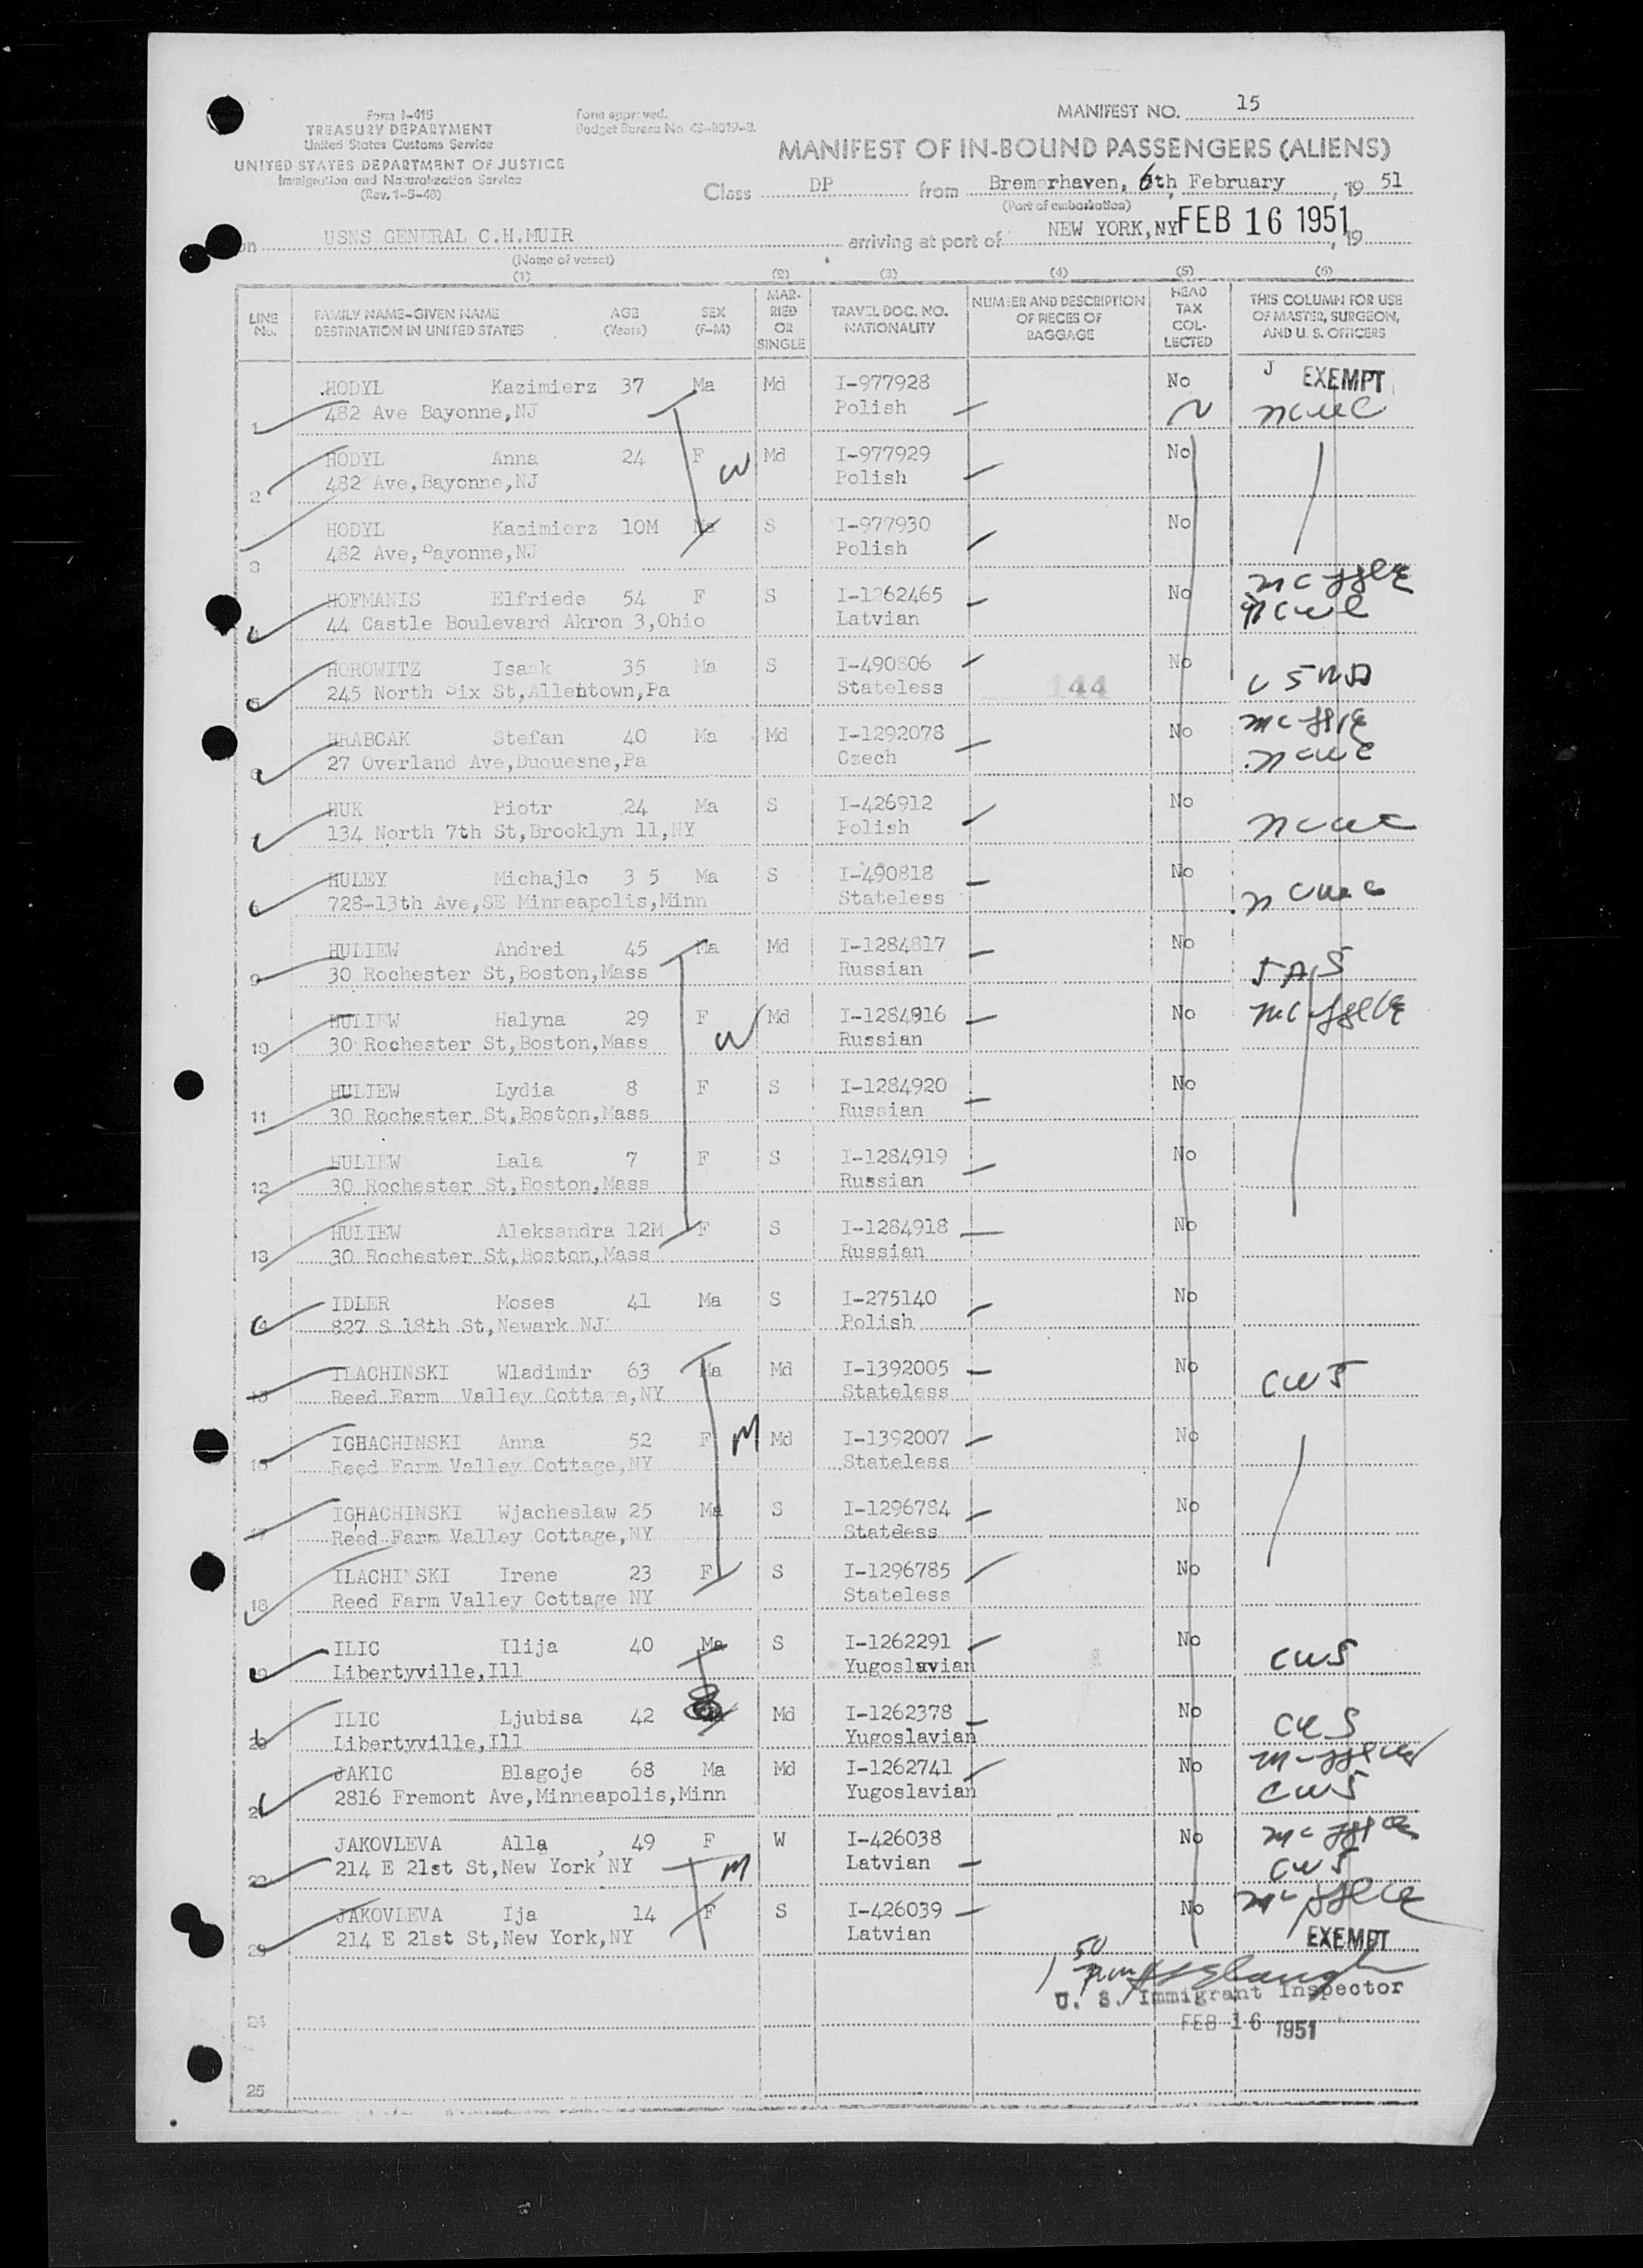 Form I-415
TREASURY DEPARTMENT
United States Customs Service
UNITED STATES DEPARTMENT OF JUSTICE
Immigration and Naturalization Service
(Rev. 1-5-48)
Form approved.
Budget Bureau No. 43-R019-3.
MANIFEST NO. 15
MANIFEST OF IN-BOUND PASSENGERS (ALIENS)
Class DP from Bremerhaven, 6th, February, 19 51
(Port of embarkation)
on USNS GENERAL C.H.MUIR arriving at port of NEW YORK,NY FEB 16 1951, 19
(Name of vessel)
(1) (2) (3) (4) (5) (6)
LINE No. FAMILY NAME-GIVEN NAME DESTINATION IN UNITED STATES AGE (Years) SEX (F-M) MARRIED OR SINGLE TRAVEL DOC. NO. NATIONALITY NUMBER AND DESCRIPTION OF PIECES OF BAGGAGE HEAD TAX COLLECTED THIS COLUMN FOR USE OF MASTER, SURGEON, AND U. S. OFFICERS
HODYL Kazimierz 37 Ma Md I-977928 No J EXEMPT
1 482 Ave Bayonne,NJ Polish ncwc
HODYL Anna 24 F Md I-977929 No
2 482 Ave,Bayonne,NJ W Polish
HODYL Kazimierz 10M Ma S I-977930 No
3 482 Ave,Bayonne,NJ Polish
HOFMANIS Elfriede 54 F S I-1262465 No
4 44 Castle Boulevard Akron 3,Ohio Latvian ncwc
HOROWITZ Isaak 35 Ma S I-490806 No
5 245 North Six St,Allentown,Pa Stateless 144 USNA
HRABCAK Stefan 40 Ma Md I-1292078 No
6 27 Overland Ave,Duquesne,Pa Czech ncwc
HUK Piotr 24 Ma S I-426912 No
7 134 North 7th St,Brooklyn 11,NY Polish ncwc
HULEY Michajlo 3 5 Ma S I-490818 No
8 728-13th Ave,SE Minneapolis,Minn Stateless ncwc
HULIEW Andrei 45 Ma Md I-1284817 No
9 30 Rochester St,Boston,Mass Russian
HULIEW Halyna 29 F Md I-1284916 No
10 30 Rochester St,Boston,Mass W Russian
HULIEW Lydia 8 F S I-1284920 No
11 30 Rochester St,Boston,Mass Russian
HULIEW Lala 7 F S I-1284919 No
12 30 Rochester St,Boston,Mass Russian
HULIEW Aleksandra 12M F S I-1284918 No
13 30 Rochester St,Boston,Mass Russian
IDLER Moses 41 Ma S I-275140 No
14 827 S 18th St,Newark NJ Polish
ILACHINSKI Wladimir 63 Ma Md I-1392005 No
15 Reed Farm Valley Cottage,NY Stateless CWS
IGHACHINSKI Anna 52 F M Md I-1392007 No
16 Reed Farm Valley Cottage,NY Stateless
IGHACHINSKI Wjacheslaw 25 Ma S I-1296784 No
17 Reed Farm Valley Cottage,NY Statdess
ILACHINSKI Irene 23 F S I-1296785 No
18 Reed Farm Valley Cottage NY Stateless
ILIC Ilija 40 Ma S I-1262291 No
19 Libertyville,Ill Yugoslavian CWS
ILIC Ljubisa 42 Md I-1262378 No
20 Libertyville,Ill Yugoslavian CWS
JAKIC Blagoje 68 Ma Md I-1262741 No
21 2816 Fremont Ave,Minneapolis,Minn Yugoslavian CWS
JAKOVLEVA Alla, 49 F W I-426038 No
22 214 E 21st St,New York NY M Latvian CWS
JAKOVLEVA Ija 14 F S I-426039 No
23 214 E 21st St,New York,NY Latvian EXEMPT
U. S. Immigrant Inspector
24 FEB 16 1951
25